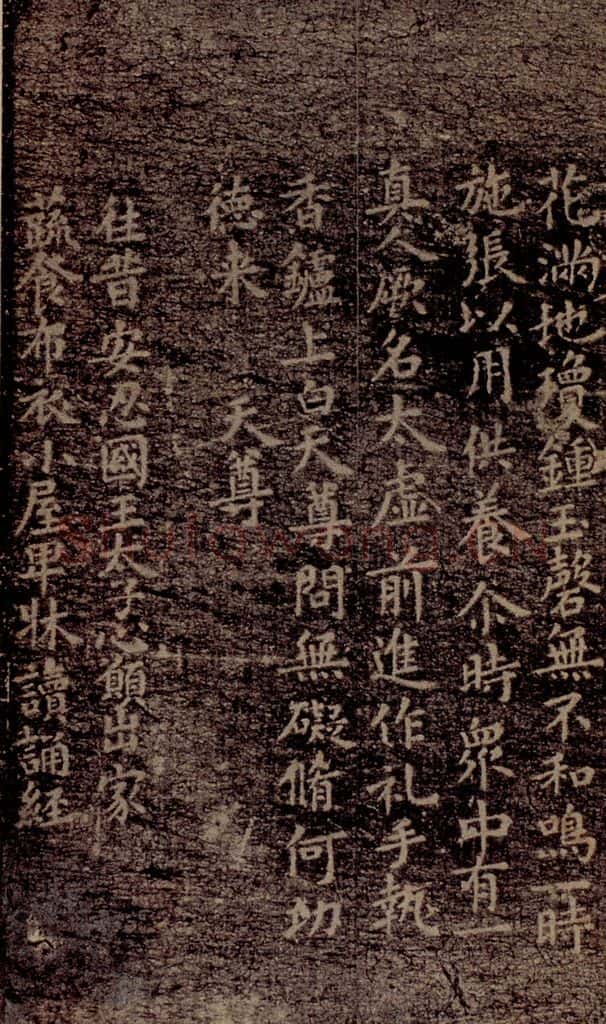 花滿地瓊鍾玉磬無不和鳴一時
施張以用供養尒時衆中有一
真人厥名太虛前進作礼手執
香鑪上白天尊問無礙脩何功
徳来　天尊
往昔安忍國王太子心願出家
蔬食布衣小屋卑牀讀誦經